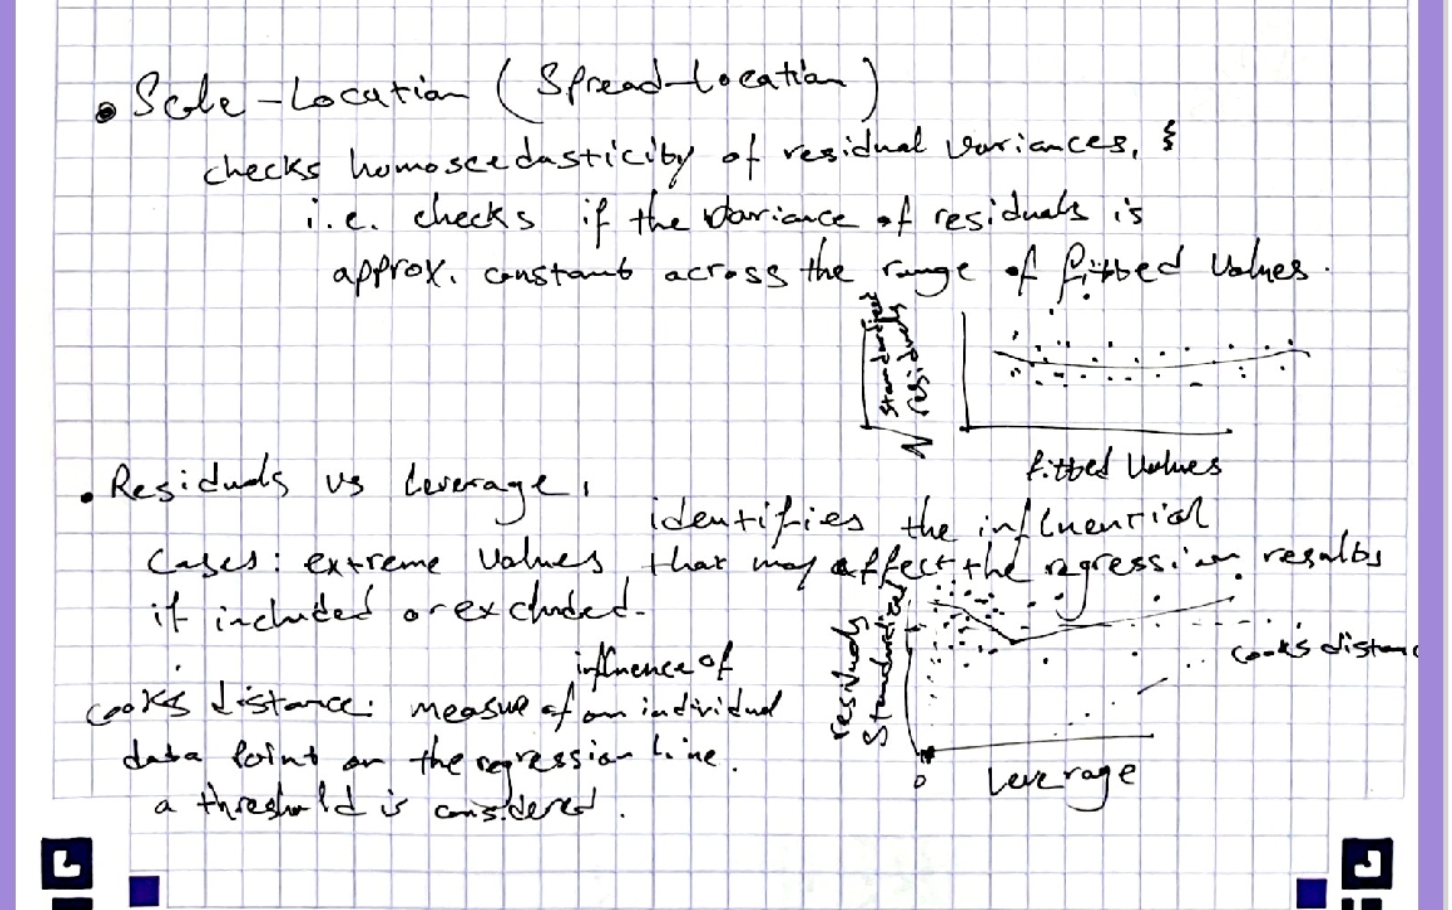 • Scale-Location (Spread-Location)
checks homoscedasticity of residual variances,
i.e. checks if the variance of residuals is
approx. constant across the range of fitted values.
√ standardized residuals
fitted values
• Residuals vs leverage,
identifies the influential
cases: extreme values that may affect the regression results
if included or excluded.
influence of
cook's distance: measure of an individual
data point on the regression line.
a threshold is considered.
residuals
Standardized
cook's distanc
0
Leverage